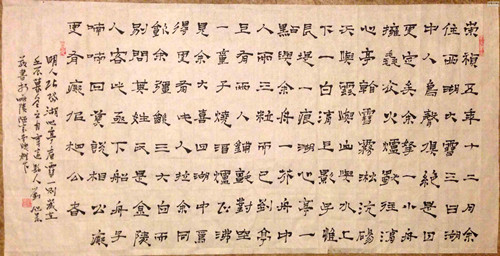 崇禎五年十二月余
住西湖大雪三日湖
中人鳥聲俱絕是日
更定矣余拏一小舟
擁毳衣爐火獨往湖
心亭看雪霧淞沆碭
天與雲與山與水上
下一白湖上影子惟
長堤一痕湖心亭一
點與余舟一芥舟中
人兩三粒而已到亭
上有兩人鋪氈對坐
一童子燒酒爐正沸
見余大喜曰湖中焉
得更有此人拉余同
飲余強飲三大白而
別問其姓氏是金陵
人客此及下船舟子
喃喃曰莫說相公癡
更有癡似相公者
明人張岱湖心亭看雪一則歲在